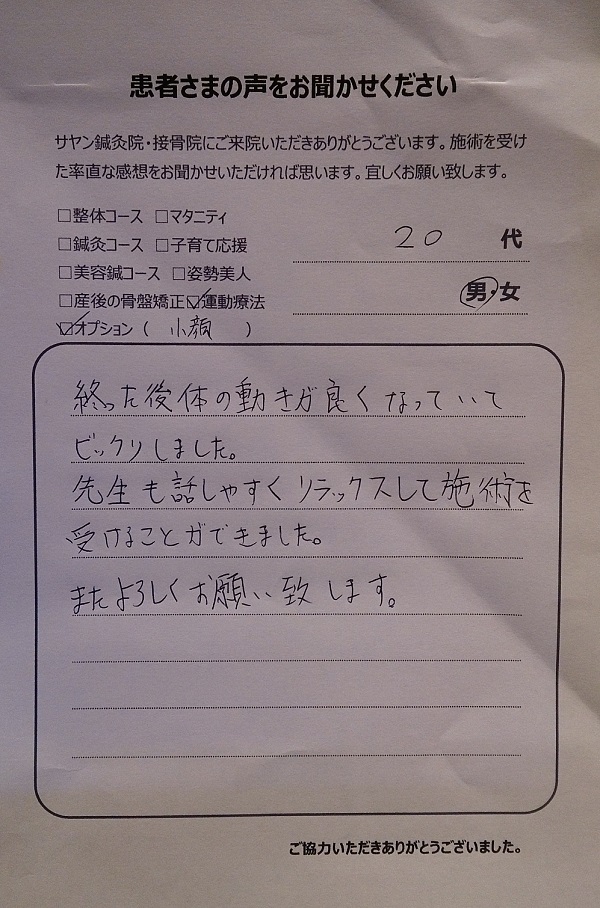 患者さまの声をお聞かせください
サヤン鍼灸院・接骨院にご来院いただきありがとうございます。施術を受け
た率直な感想をお聞かせいただければ思います。宜しくお願い致します。
□整体コース □マタニティ
□鍼灸コース □子育て応援
20 代
□美容鍼コース □姿勢美人
男・女
□産後の骨盤矯正☑運動療法
☑オプション ( 小顔 )
終った後体の動きが良くなっていて
ビックリしました。
先生も話しやすくリラックスして施術を
受けることができました。
またよろしくお願い致します。
ご協力いただきありがとうございました。